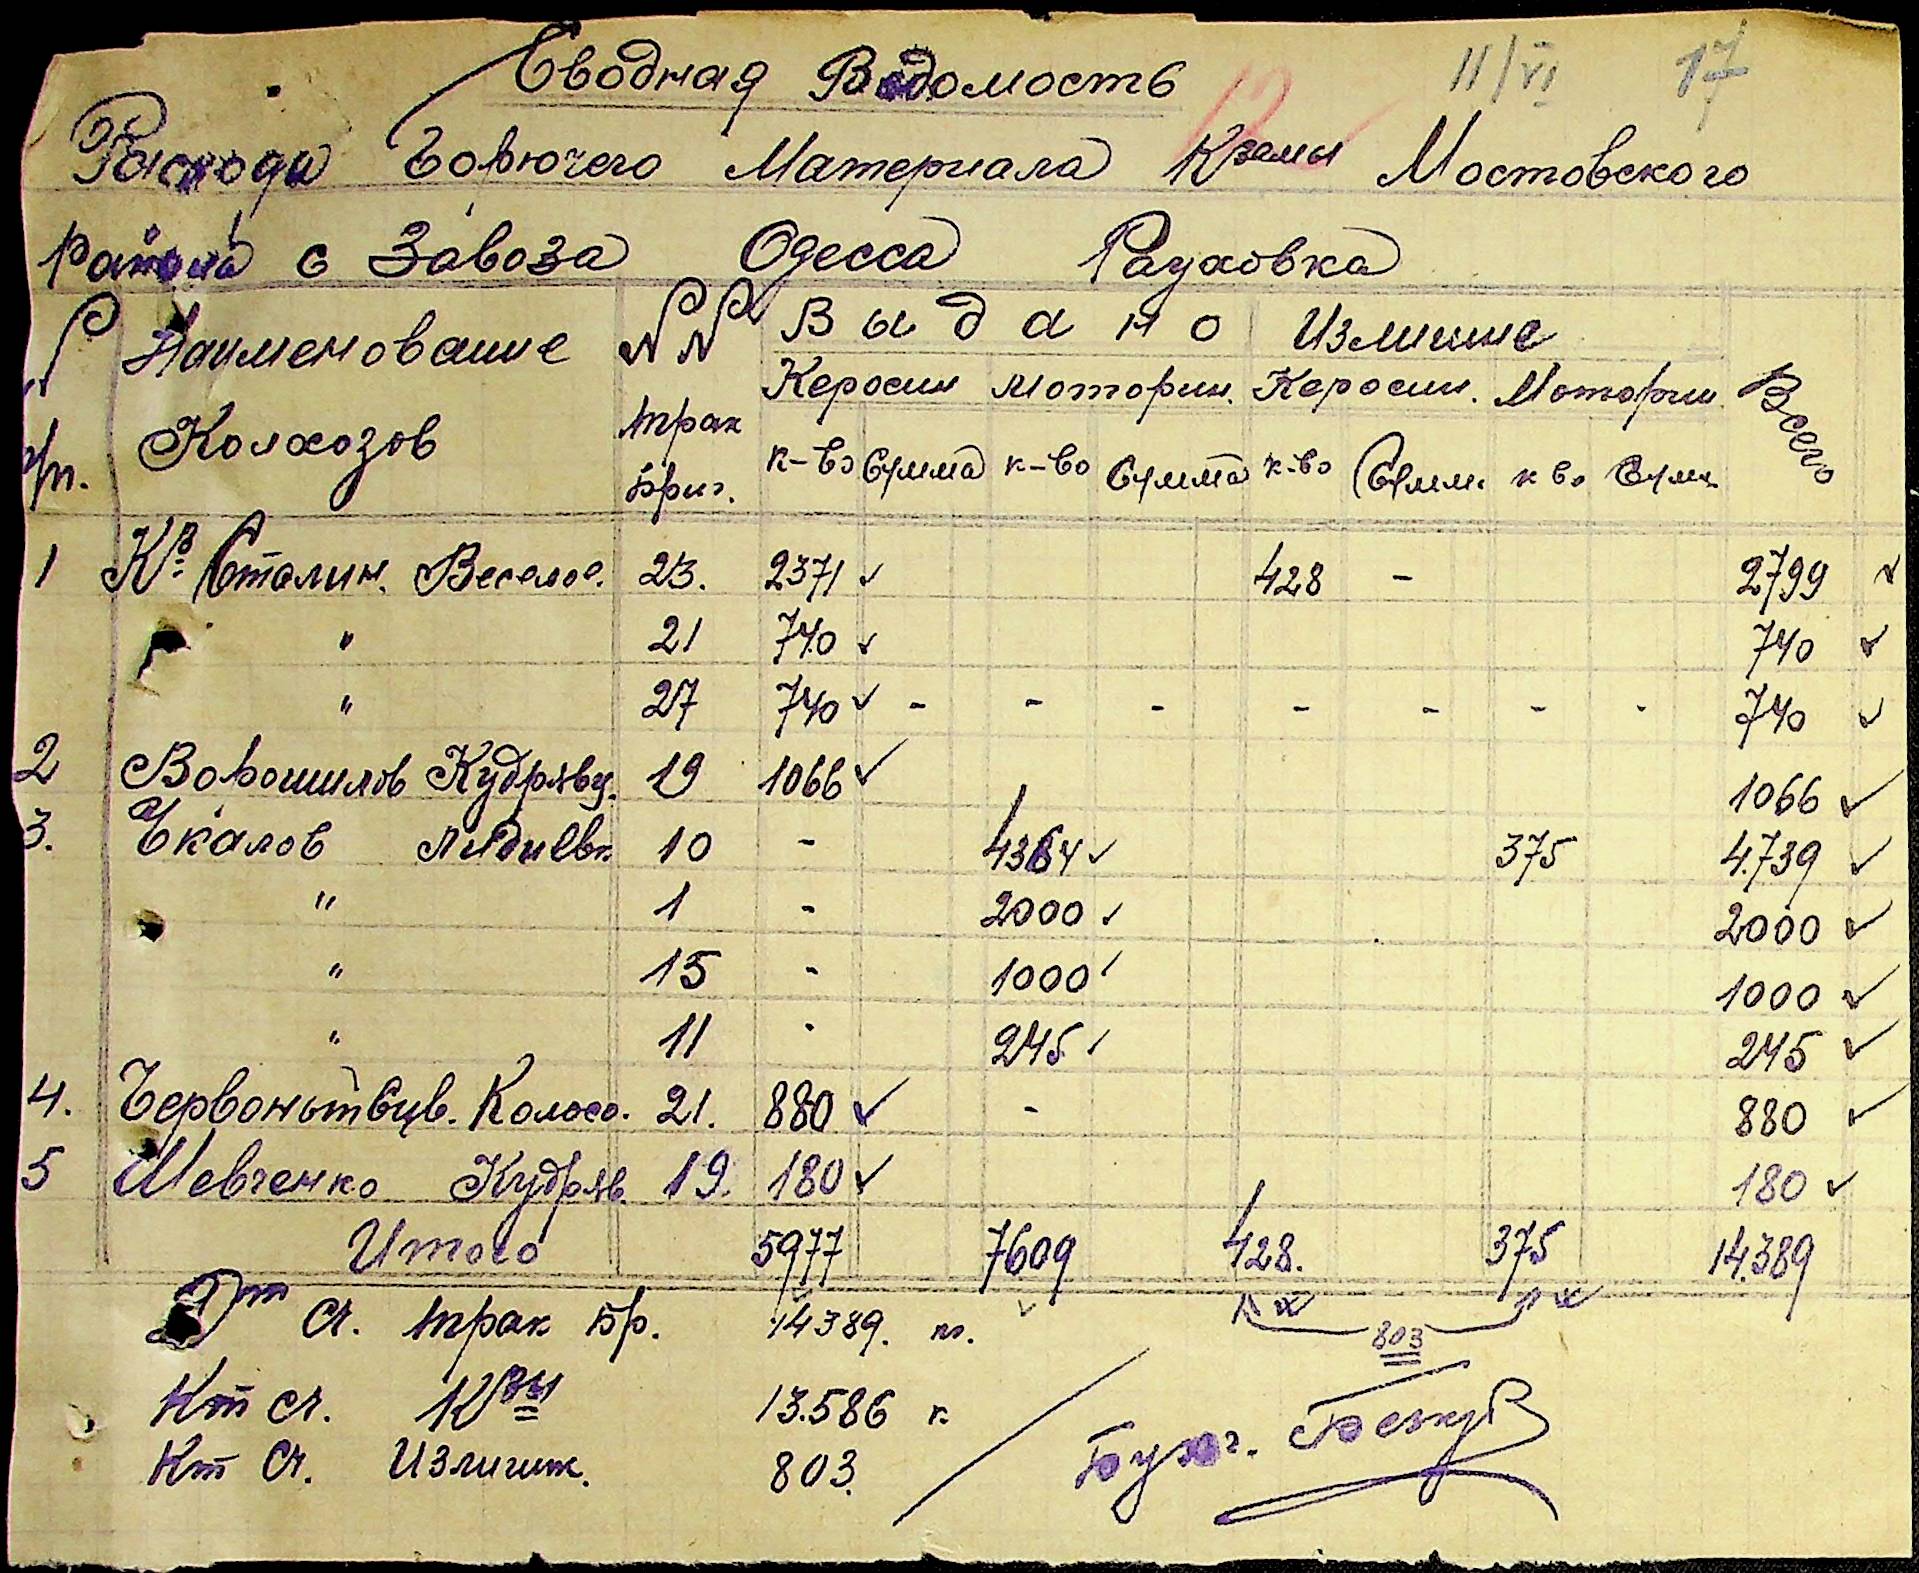 Сводная Ведомость 11/VI 17
12
Расхода Горючего Материала Мостовского
Района с Завоза Одесса Рауховка
№ Наименование №№ Выдано Излишне Всего
п/п. Колхозов трак Керосин Моторин. Керосин. Моторин
бриг. к-во Сумма к-во Сумма к-во Сумм. к во Сумм.
1 Сталин. Веселое. 23. 2371 ✓ 428 - 2799 ✓
" 21 740 ✓ 740 ✓
" 27 740 ✓ - - - - - - - 740 ✓
2 Ворошилов Кудрявц. 19 1066 ✓ 1066 ✓
3. Чкалов 10 - 4364 ✓ 375 4.739 ✓
" 1 - 2000 ✓ 2000 ✓
" 15 - 1000 ✓ 1000 ✓
" 11 - 245 ✓ 245 ✓
4. Колосо. 21. 880 ✓ - 880 ✓
5 Шевченко Кудряв. 19. 180 ✓ 180 ✓
Итого 5977 7609 428. 375 14.389
Дт сч. трак бр. 14389. кг. ✓ 803
Кт сч. 13.586 к
Кт сч. Излишк. 803.
Бухг.